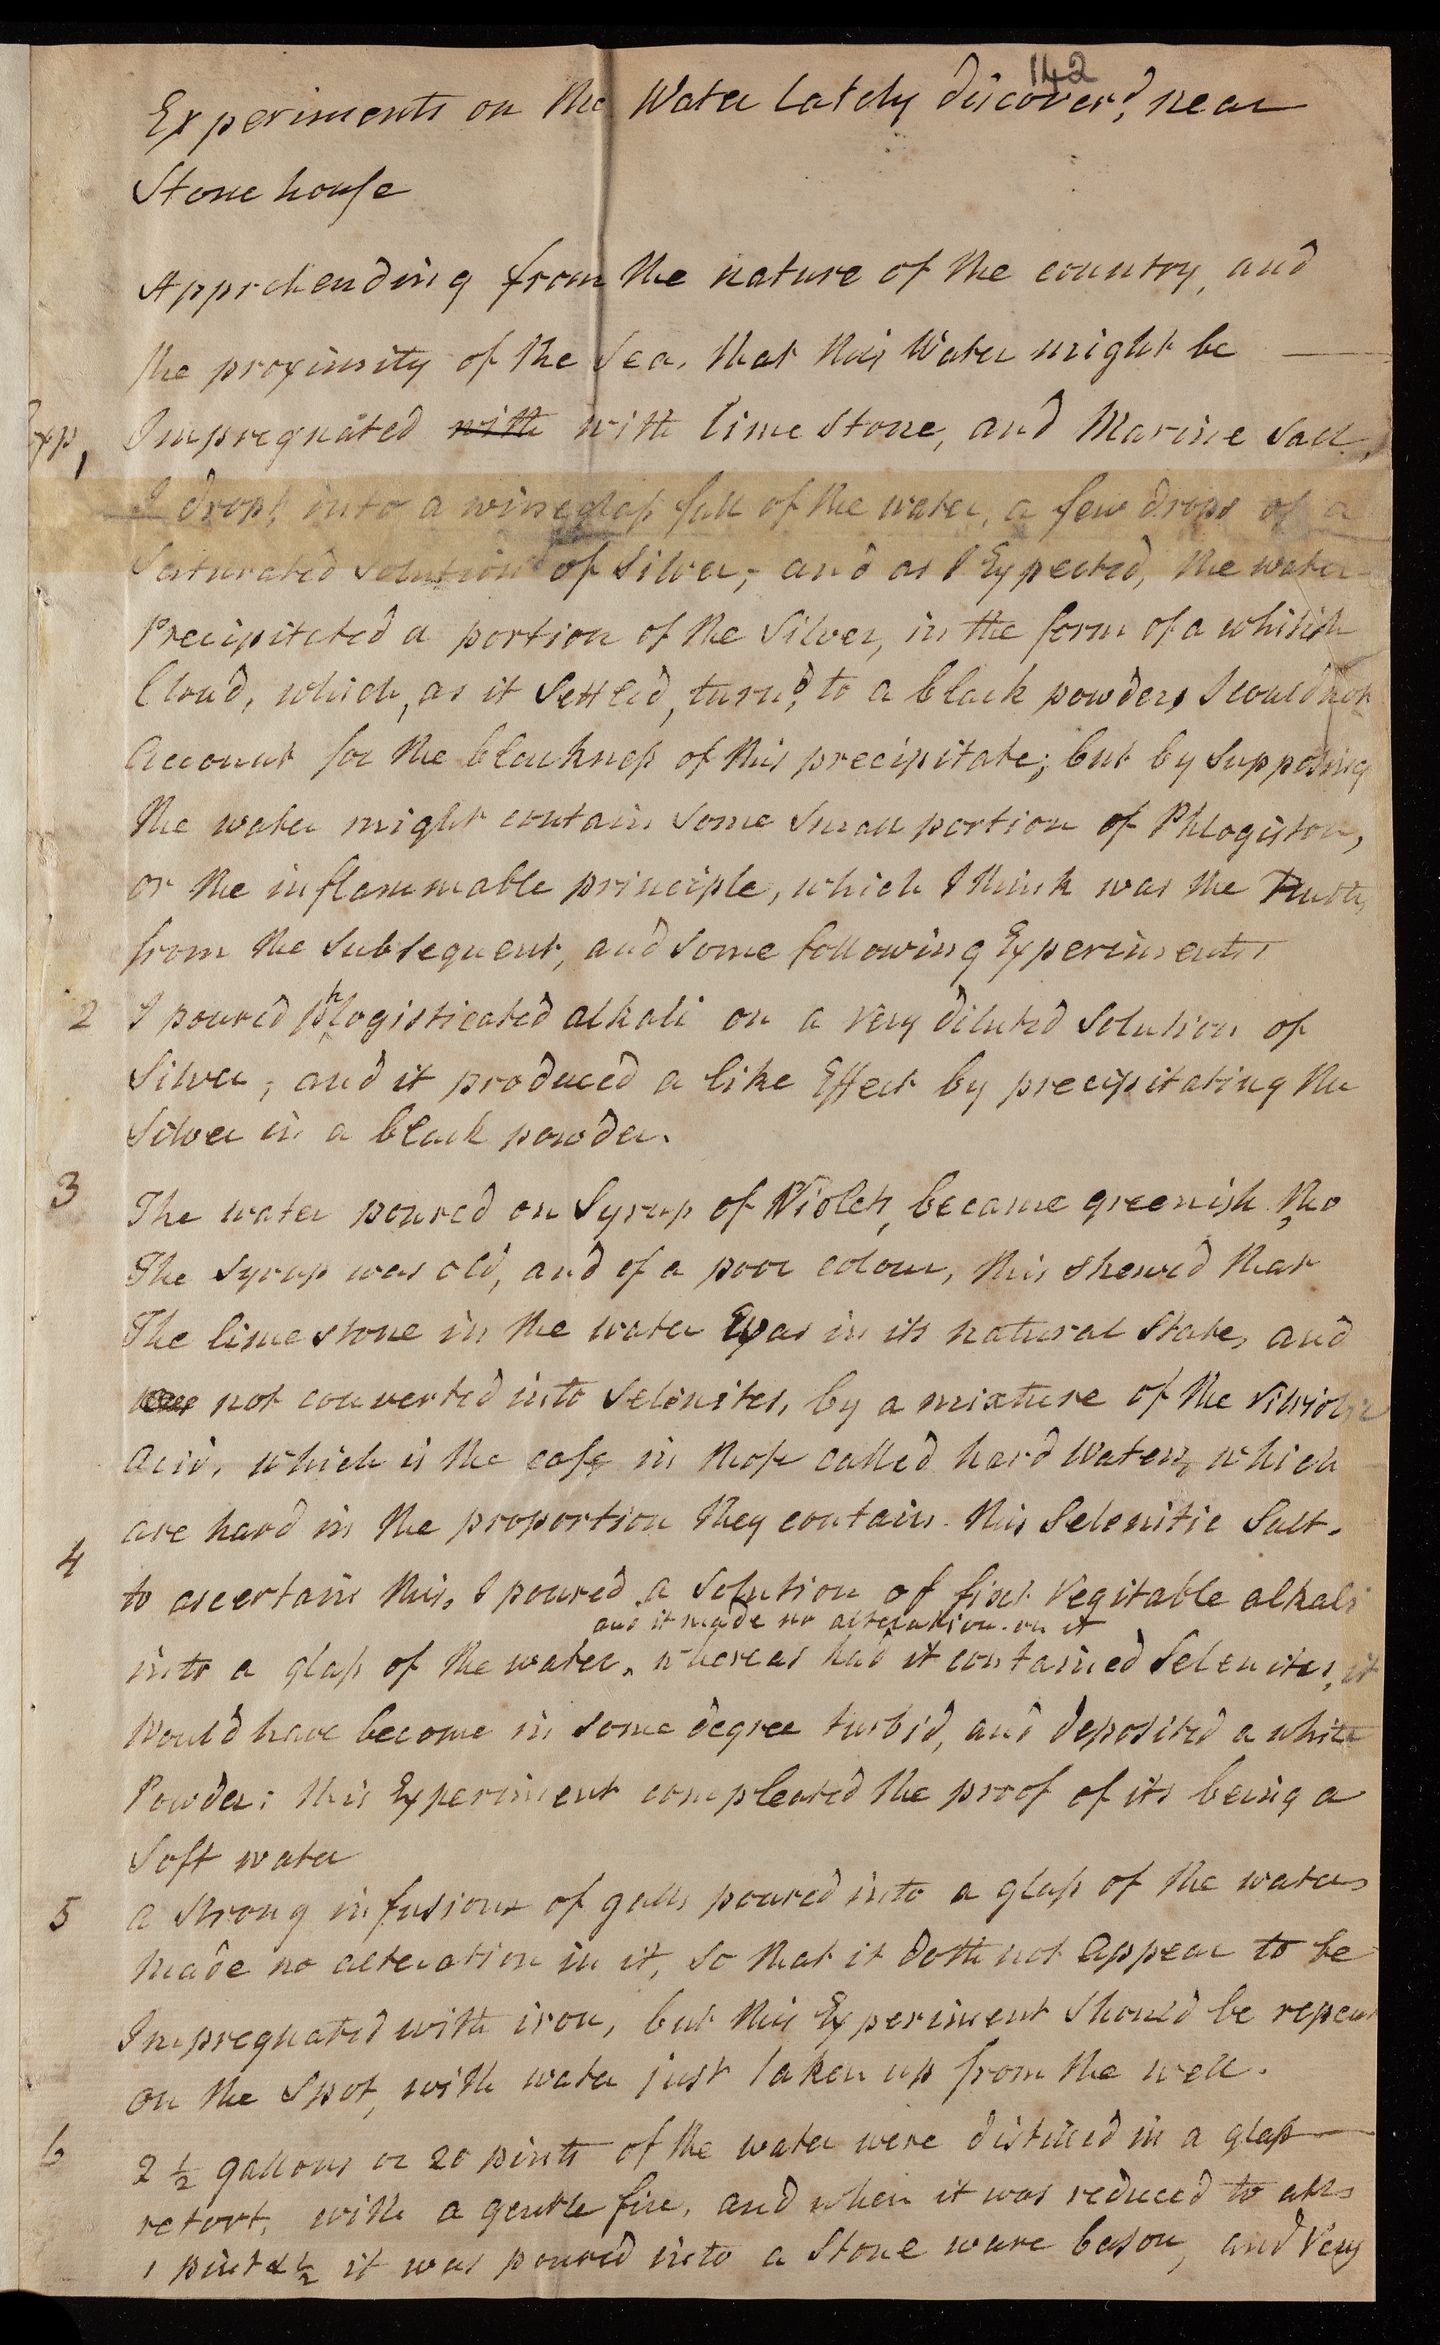 142
Experiments on the Water Lately discover'd, near
Stonehouse
Apprehending from the nature of the country, and
the proximity of the Sea, that this Water might be
Exp, Impregnated with with lime stone, and Marine Salt,
I dropt into a wineglass full of the water, a few drops of a
Saturated solution of Silver; and as I Expected, the water
Precipitated a portion of the Silver, in the form of a whitish
Cloud, which, as it Settled, turn'd to a black powder, I could not
Account for the blackness of this precipitate; but by supposing
the water might contain some small portion of Phlogiston,
or the inflammable principle, which I think was the Truth,
from the subsequent, and some following Experiments
2 I poured phlogisticated alkali on a very diluted Solution of
Silver, and it produced a like Effect by precipitating the
Silver in a black powder.
3 The water poured on Syrup of Violets, became greenish, tho
The Syrup was old, and of a poor colour, this shewed that
The lime stone in the water was in its natural State, and
not converted into Selenites, by a mixture of the vitriolic
Acid, which is the case in those called hard Waters, which
are hard in the proportion they contain this Selenitic Salt.
4 to ascertain this, I poured a solution of fixt vegitable alkali
and it made no alteration on it
into a glass of the water, whereas had it contained Selenites, it
Would have become in some degree turbid, and deposited a white
Powder: this Experiment compleated the proof of its being a
Soft water
5 a strong infusion of galls poured into a glass of the water
made no alteration in it, so that it doth not appear to be
Impregnated with iron, but this Experiment should be repeat
on the Spot, with water just taken up from the well.
6 2 1/2 gallons or 20 pints of the water were distilled in a glass
retort, with a gentle fire, and when it was reduced to abt
1 pint & 1/2 it was poured into a Stone ware bason, and Very